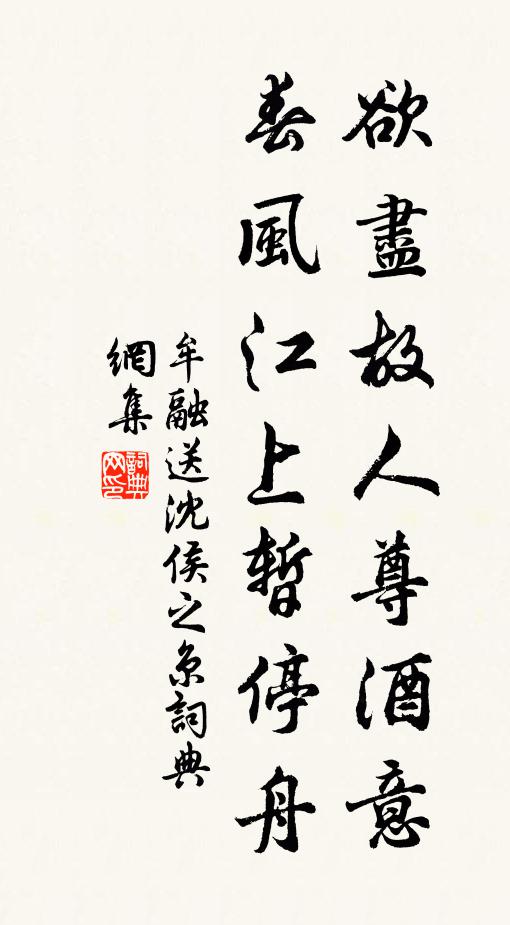 欲盡故人尊酒意
春風江上暫停舟
牟融送沈侯之京詞典
網集
詞典
网印